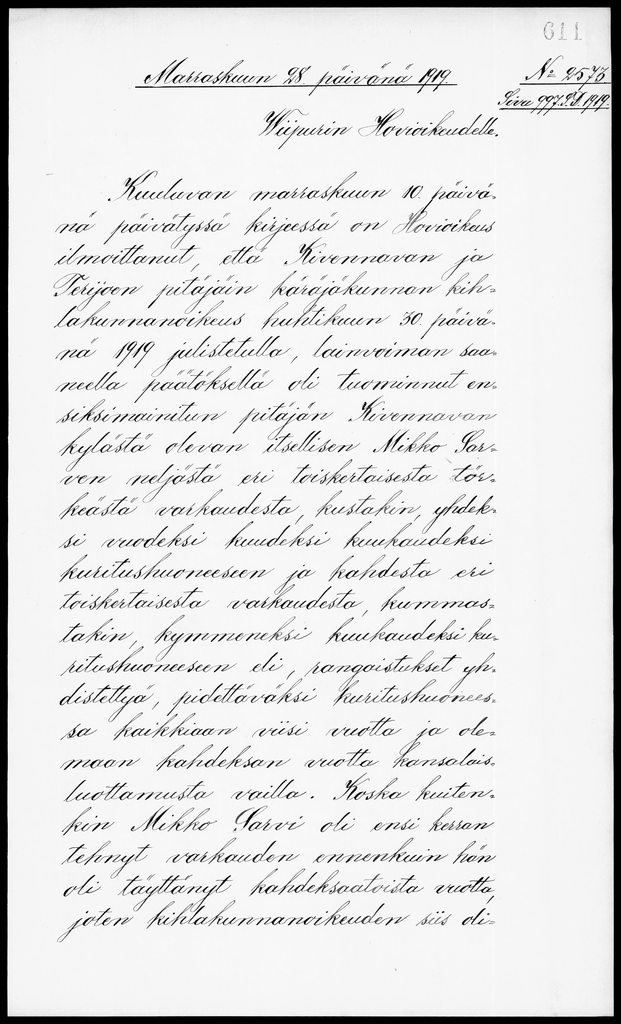 611
Marraskuun 28. päivänä 1919.
No 2573
Sivu 997. S.D. 1919.
Wiipurin Hovioikeudelle.
Kuuluvan marraskuun 10. päivä-
nä päivätyssä kirjeessä on Hovioikeus
ilmoittanut, että Kivennavan ja
Terijoen pitäjäin käräjäkunnan kih-
lakunnanoikeus huhtikuun 30. päivä-
nä 1919 julistetulla, lainvoiman saa-
neella päätöksellä oli tuominnut en-
siksimainitun pitäjän Kivennavan
kylästä olevan itsellisen Mikko Sar-
ven neljästä eri toiskertaisesta tör-
keästä varkaudesta, kustakin, yhdek-
si vuodeksi kuudeksi kuukaudeksi
kuritushuoneeseen ja kahdesta eri
toiskertaisesta varkaudesta, kummas-
takin, kymmeneksi kuukaudeksi ku-
ritushuoneeseen eli, rangaistukset yh-
distettyä, pidettäväksi kuritushuonees-
sa kaikkiaan viisi vuotta ja ole-
maan kahdeksan vuotta kansalais-
luottamusta vailla. Koska kuiten-
kin Mikko Sarvi oli ensi kerran
tehnyt varkauden ennenkuin hän
oli täyttänyt kahdeksaatoista vuotta,
joten kihlakunnanoikeuden siis oli-